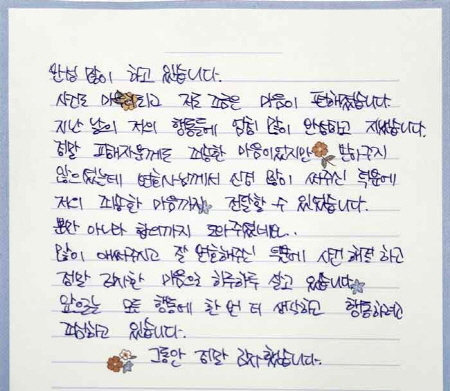 반성 많이 하고 있습니다.
사건도 저도 조금은 마음이 편해졌습니다.
지난 날의 저의 행동들에 엄청 많이 반성하고 지냈습니다.
정말 피해자분께도 죄송한 마음이었지만
않으셨는데 변호사님께서 신경 많이 써주신 덕분에
저의 죄송한 마음까지 전달할 수 있었습니다.
뿐만 아니라 합의까지 도와주셨네요..
많이 애써주시고 잘 변호해주신 덕분에 사건 해결 하고
정말 감사한 마음으로 하루하루 살고 있습니다
앞으로는 모든 행동에 한 번 더 생각하고 행동하려고
다짐하고 있습니다.
그동안 정말 감사했습니다.